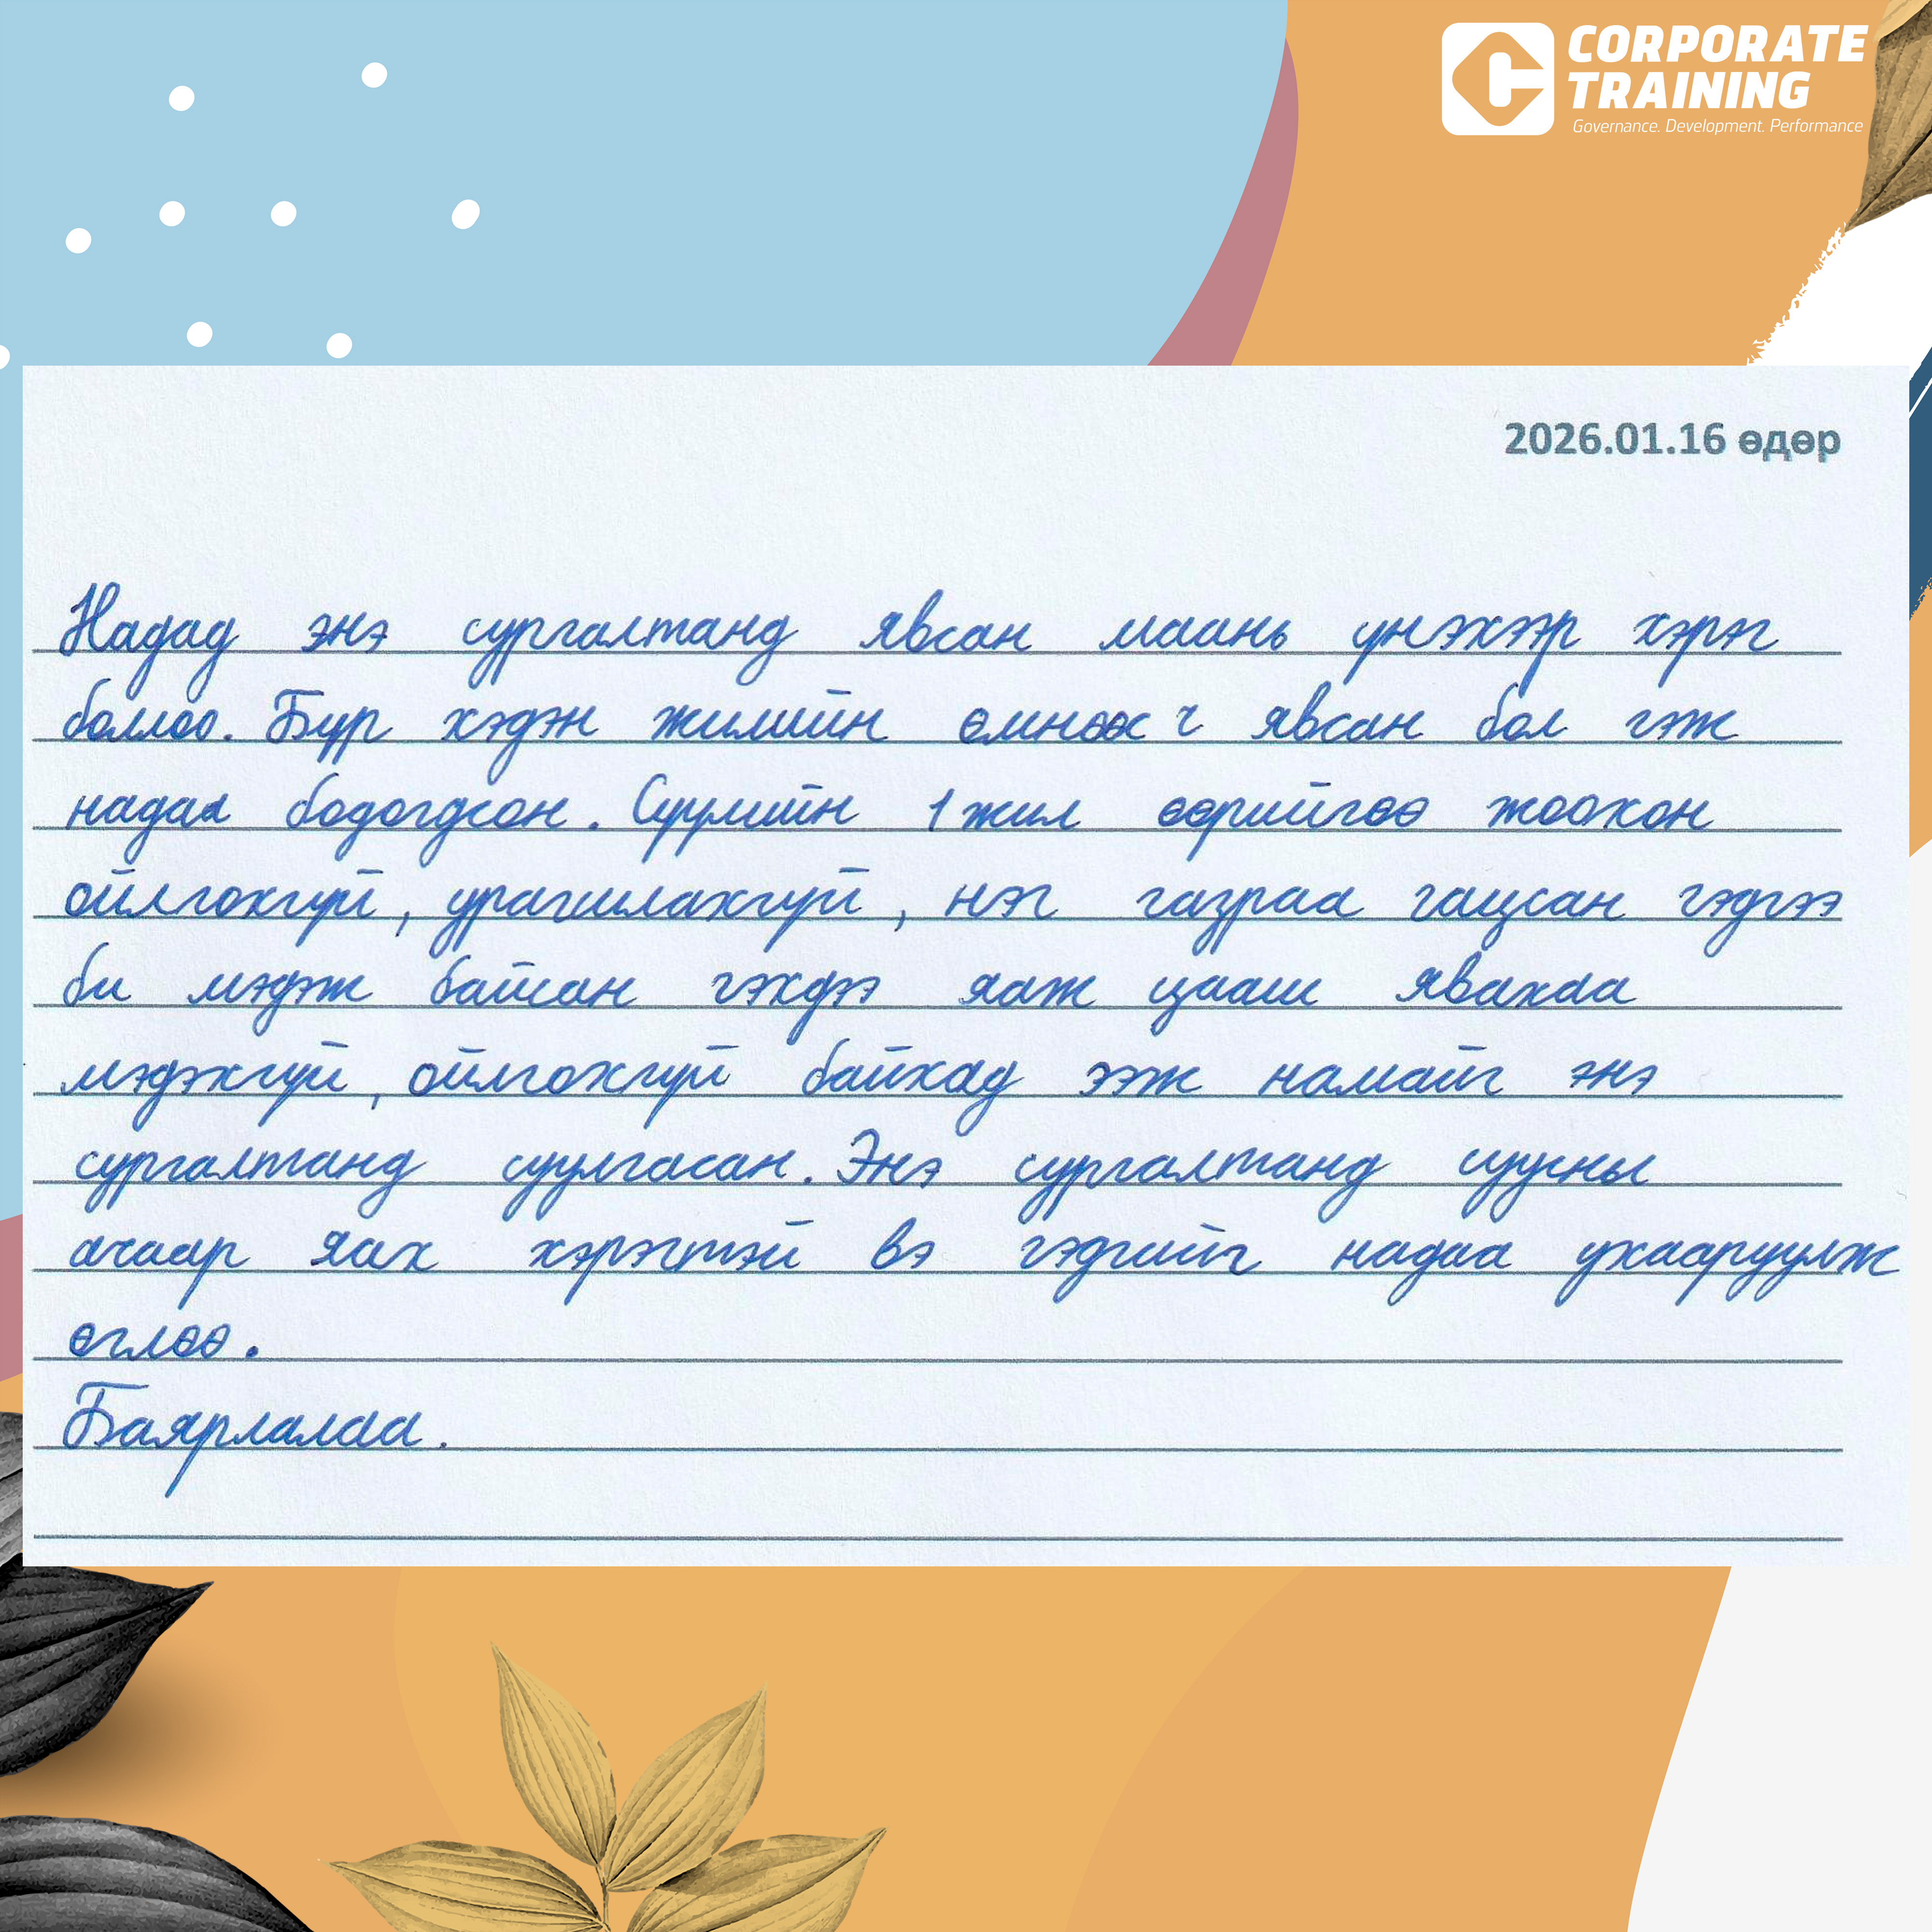 CORPORATE
TRAINING
Governance. Development. Performance
2026.01.16 өдөр
Надад энэ сургалтанд явсан маань үнэхээр хэрэг
боллоо. Бүр хэдэн жилийн өмнөөс ч явсан бол гэж
надаа бодогдсон. Сүүлийн 1 жил өөрийгөө жоохон
ойлгохгүй, урагшлахгүй, нэг газраа гацсан гэдгээ
би мэдэж байсан гэхдээ яаж цааш явахаа
мэдэхгүй, ойлгохгүй байхад ээж намайг энэ
сургалтанд суулгасан. Энэ сургалтанд суусны
ачаар яах хэрэгтэй вэ гэдгийг надаа ухааруулж
өглөө.
Баярлалаа.